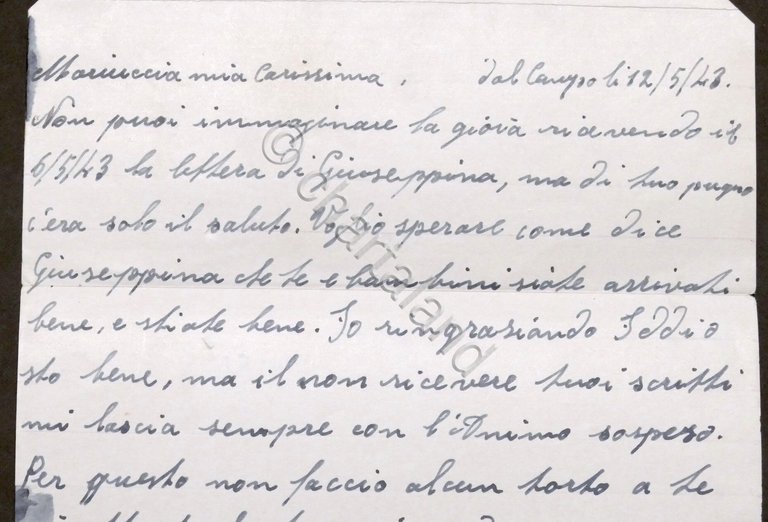 Mariuccia mia Carissima. dal Campo li 12/5/43.
Non puoi immaginare la gioia ricevendo il
6/5/43 la lettera di Giuseppina, ma di tuo pugno
c'era solo il saluto. Voglio sperare come dice
Giuseppina che te e bambini siate arrivati
bene, e stiate bene. Io ringraziando Iddio
sto bene, ma il non ricevere tuoi scritti
mi lascia sempre con l'Animo sospeso.
Per questo non faccio alcun torto a te
© chartaland